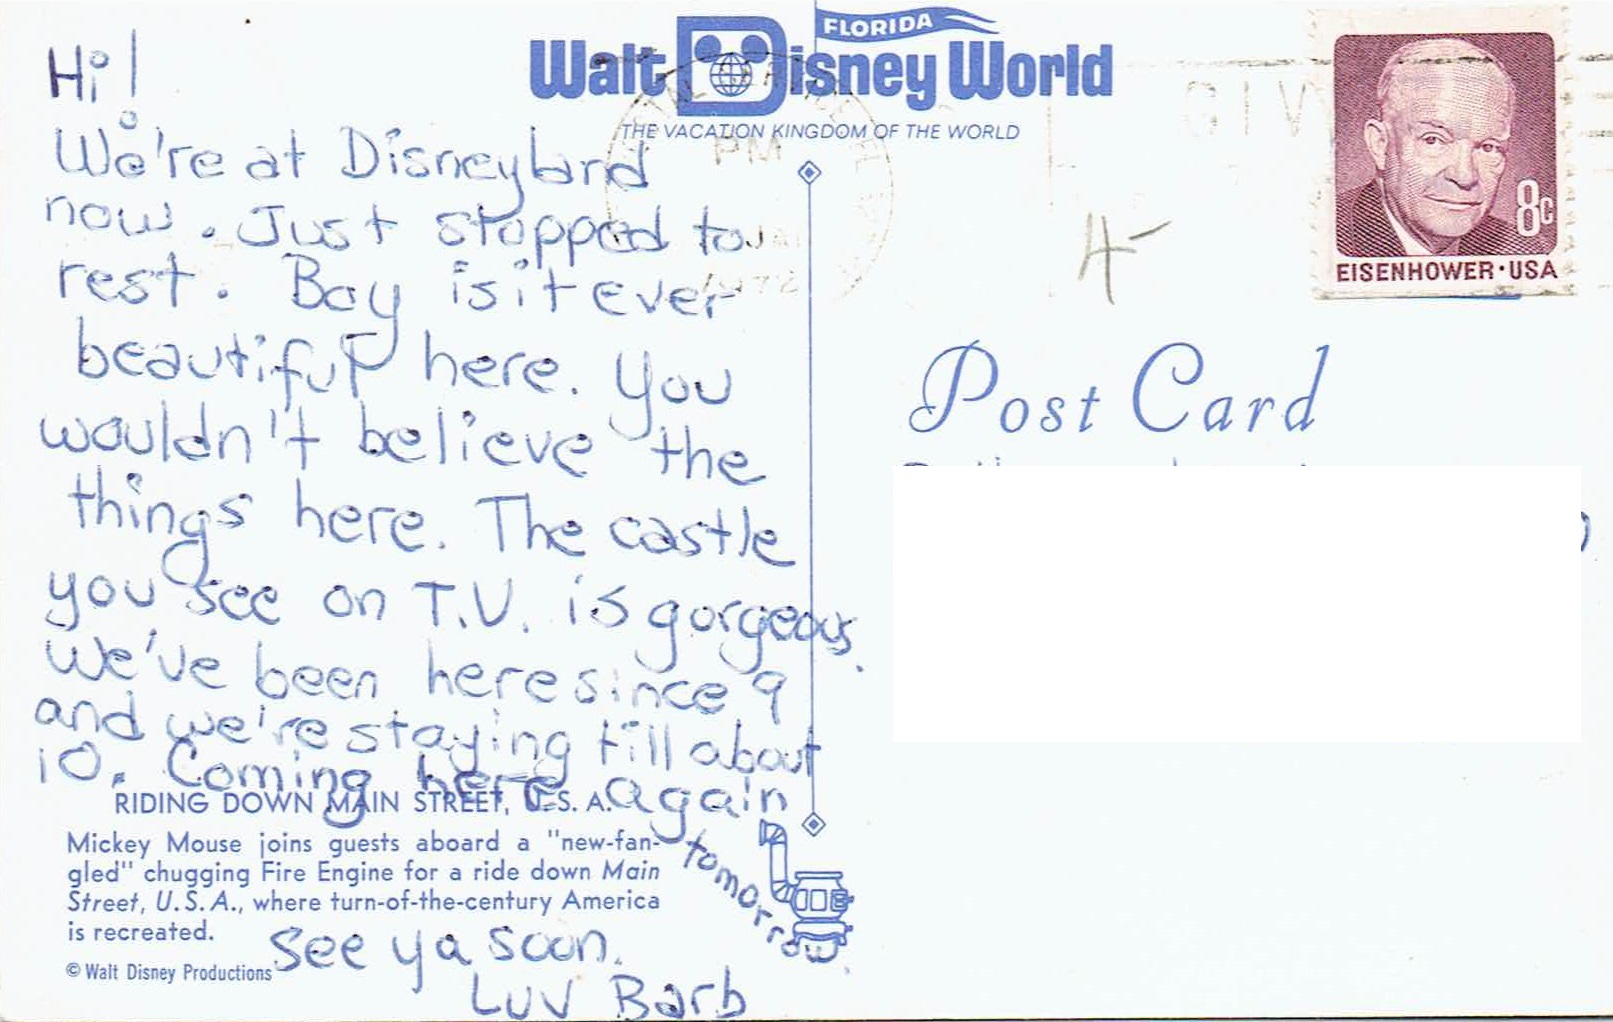 Hi!
We're at Disneyland
now. Just stopped to
rest. Boy is it ever
beautiful here. You
wouldn't believe the
things here. The castle
you see on T.V. is gorgeous.
We've been here since 9
and we're staying till about
10. Coming here again
tomorrow.
See ya soon.
Luv Barb
RIDING DOWN MAIN STREET, U.S.A.
Mickey Mouse joins guests aboard a "new-fan-
gled" chugging Fire Engine for a ride down Main
Street, U.S.A., where turn-of-the-century America
is recreated.
© Walt Disney Productions
FLORIDA
Walt Disney World
THE VACATION KINGDOM OF THE WORLD
PM
1972
8c
EISENHOWER·USA
Post Card